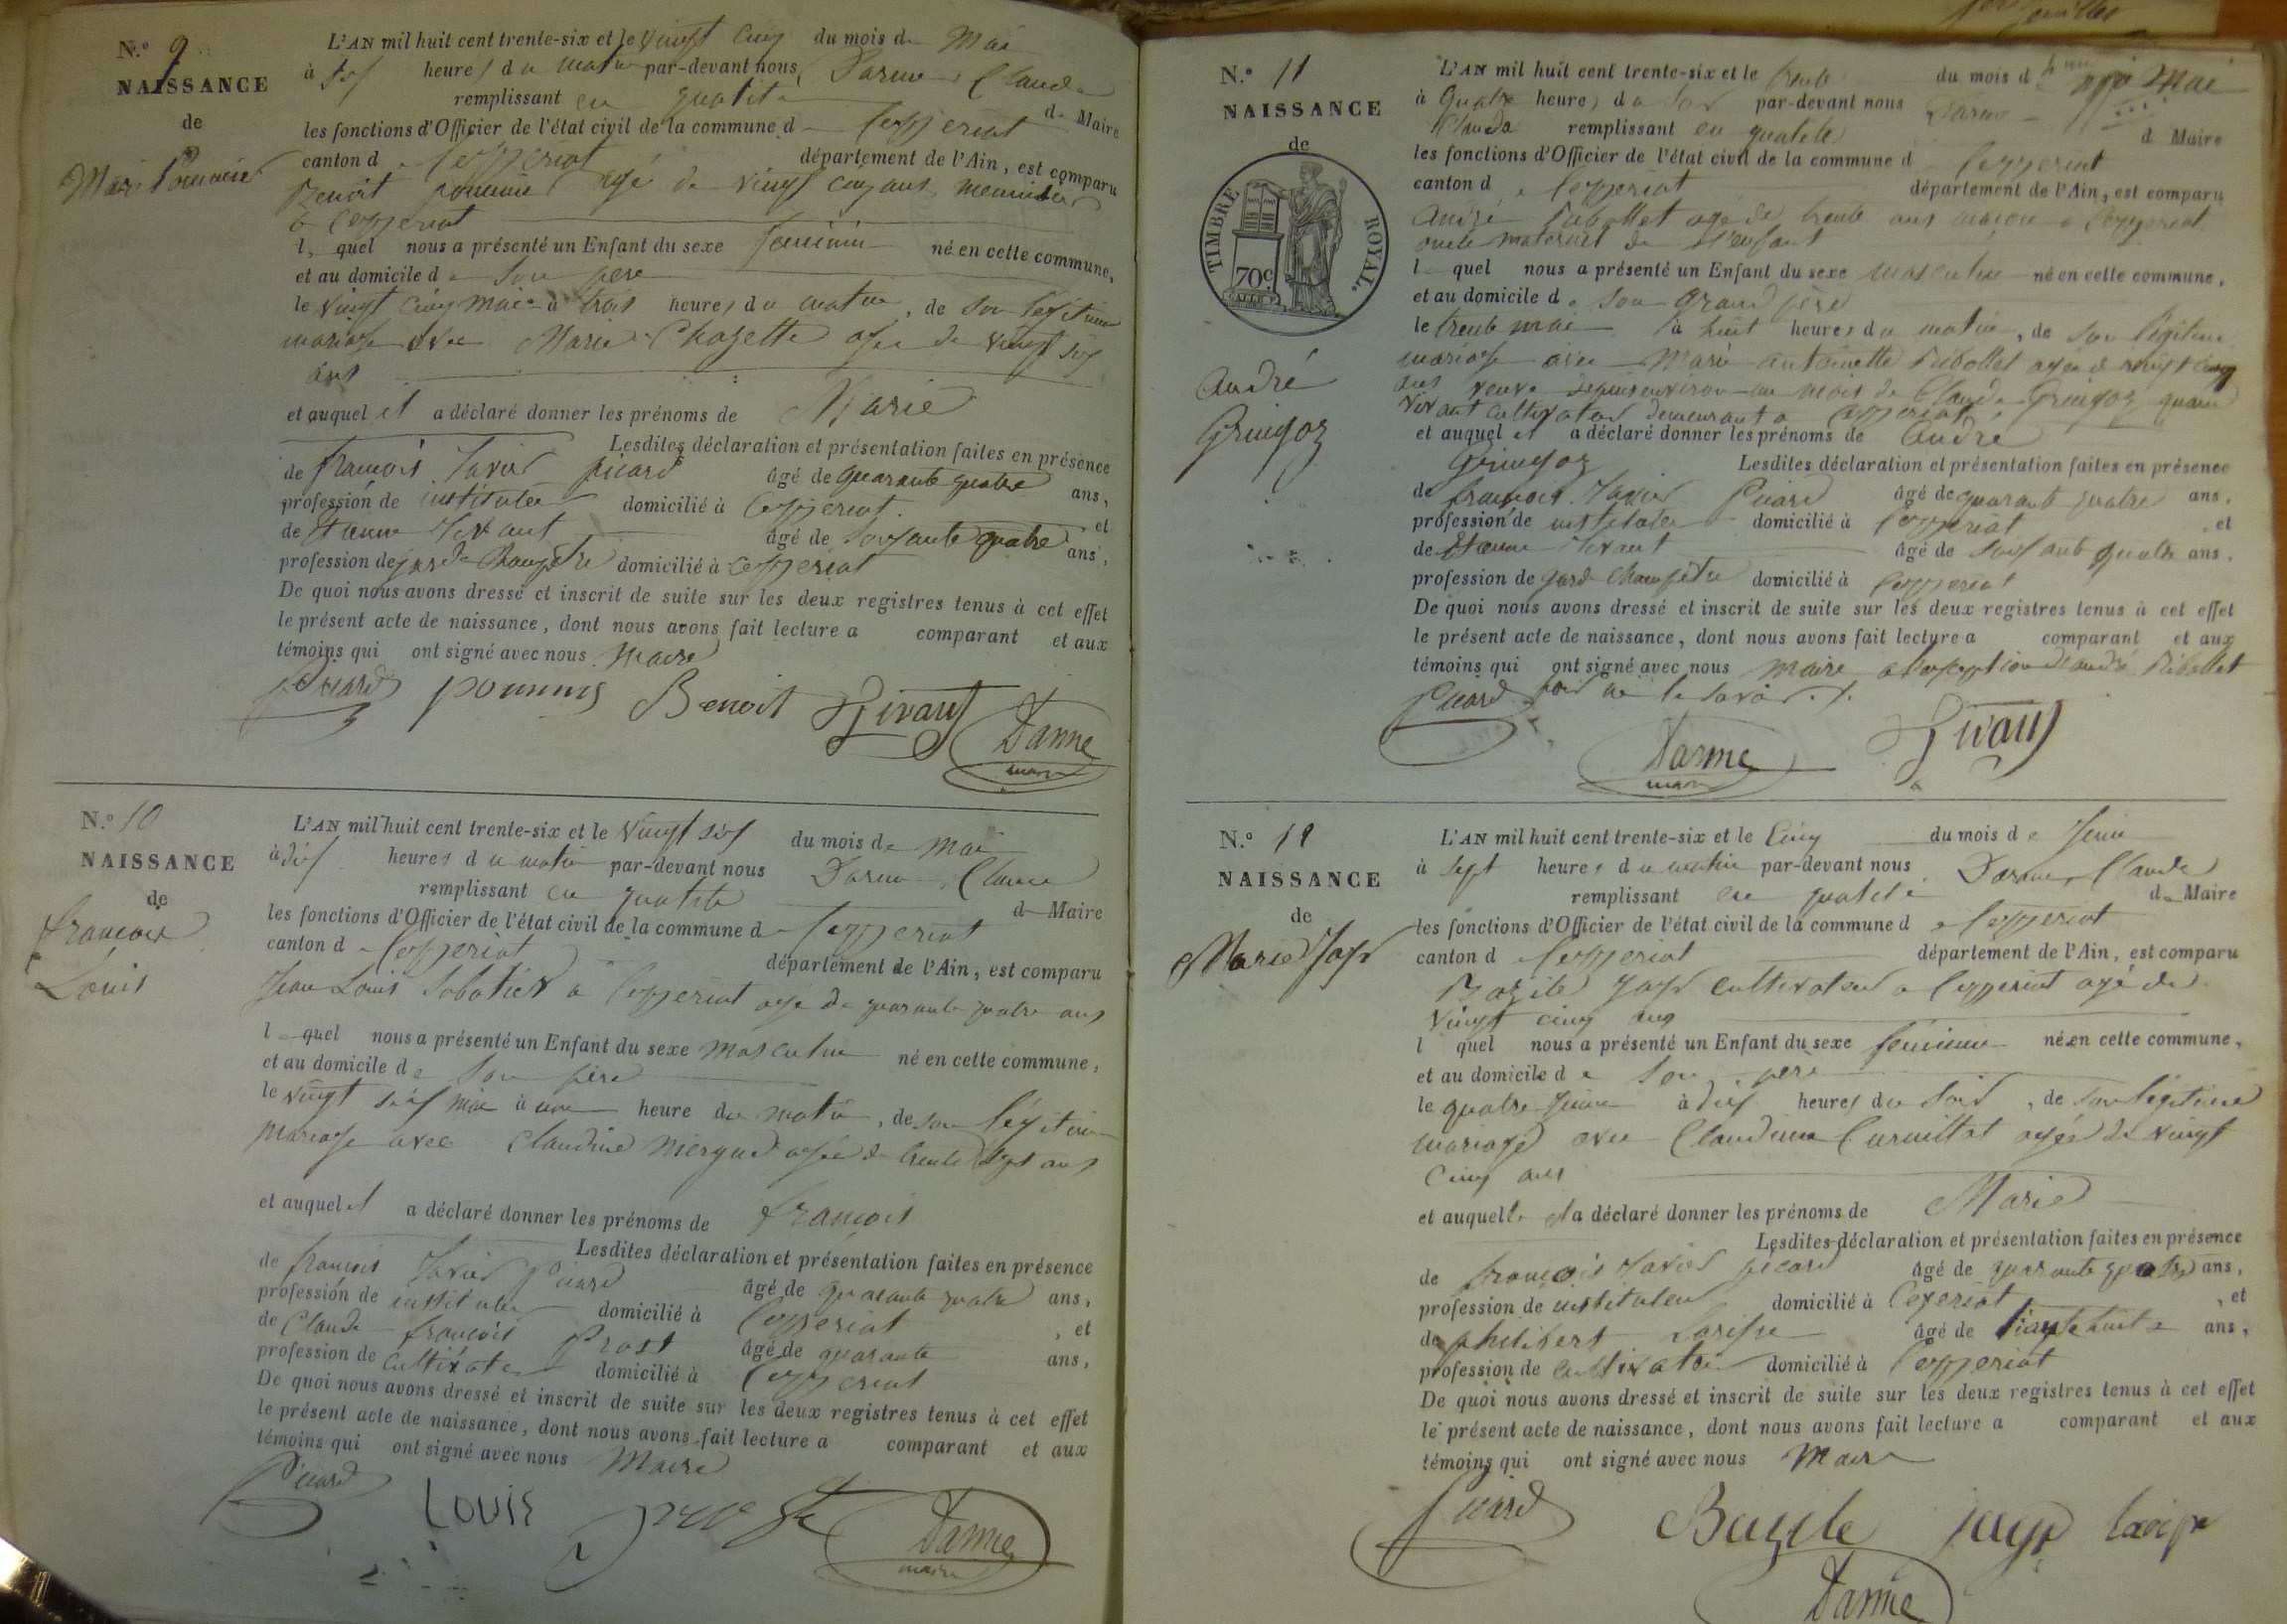 N.º 9
NAISSANCE
de
Marie Pommie
L'AN mil huit cent trente-six et le vingt cinq du mois de Mai
à dix heures du matin par-devant nous Darme Claude
remplissant en qualité de Maire
les fonctions d'Officier de l'état civil de la commune de Ceyzeriat
canton de Ceyzeriat département de l'Ain, est comparu
Benoit pommie agé de vingt cinq ans menuisier
a Ceyzeriat
lequel nous a présenté un Enfant du sexe feminin né en cette commune,
et au domicile de son pere
le vingt cinq mai à trois heures du matin, de son legitime
mariage avec Marie Chazette agee de vingt six
ans
et auquel il a déclaré donner les prénoms de Marie
Lesdites déclaration et présentation faites en présence
de françois Xavier picard âgé de quarante quatre ans,
profession de instituteur domicilié à Ceyzeriat et
de Etienne Vivant âgé de soixante quatre ans,
profession de garde champêtre domicilié à Ceyzeriat
De quoi nous avons dressé et inscrit de suite sur les deux registres tenus à cet effet
le présent acte de naissance, dont nous avons fait lecture a comparant et aux
témoins qui ont signé avec nous Maire
Picard Benoit Vivant Darme
maire
N.º 10
NAISSANCE
de
françois
Louis
L'AN mil huit cent trente-six et le vingt six du mois de Mai
à dix heures du matin par-devant nous Darme Claude
remplissant en qualité de Maire
les fonctions d'Officier de l'état civil de la commune de Ceyzeriat
canton de Ceyzeriat département de l'Ain, est comparu
Jean Louis Sabatier a Ceyzeriat age de quarante quatre ans
lequel nous a présenté un Enfant du sexe masculin né en cette commune,
et au domicile de son père
le vingt six mai à une heure du matin, de son legitime
mariage avec Claudine agée de trente sept ans
et auquel il a déclaré donner les prénoms de françois
Lesdites déclaration et présentation faites en présence
de françois Xavier Picard âgé de quarante quatre ans,
profession de instituteur domicilié à Ceyzeriat, et
de Claude françois Prost âgé de quarante ans,
profession de cultivateur domicilié à Ceyzeriat
De quoi nous avons dressé et inscrit de suite sur les deux registres tenus à cet effet
le présent acte de naissance, dont nous avons fait lecture a comparant et aux
témoins qui ont signé avec nous Maire
Picard Louis Darme
maire
N.º 11
NAISSANCE
de
TIMBRE ROYAL.
70c
André
Gringoz
L'AN mil huit cent trente-six et le trente du mois de Mai
à quatre heures du soir par-devant nous Darme
Claude remplissant en qualité d Maire
les fonctions d'Officier de l'état civil de la commune d Ceyzeriat
canton de Ceyzeriat département de l'Ain, est comparu
André Pibollet agé de trente ans maçon a Ceyzeriat
oncle maternel de l'enfant
l quel nous a présenté un Enfant du sexe masculin né en cette commune,
et au domicile de son grand père
le trente mai à huit heures du matin, de son légitime
mariage avec Marie antoinette Pibollet agée de vingt cinq
ans veuve depuis environ un mois de Claude Gringoz quand
vivant cultivateur demeurant a Ceyzeriat
et auquel il a déclaré donner les prénoms de André
Gringoz Lesdites déclaration et présentation faites en présence
de françois Xavier Picard âgé de quarante quatre ans,
profession de instituteur domicilié à Ceyzeriat, et
de Etienne Vivant âgé de soixante quatre ans,
profession de garde champêtre domicilié à Ceyzeriat
De quoi nous avons dressé et inscrit de suite sur les deux registres tenus à cet effet
le présent acte de naissance, dont nous avons fait lecture a comparant et aux
témoins qui ont signé avec nous maire a l'exception d'andré Pibollet
Picard pour ne le savoir
Darme Vivant
maire
N.º 12
NAISSANCE
de
Marie Jayr
L'AN mil huit cent trente-six et le Cinq du mois de Juin
à sept heures du matin par-devant nous Darme Claude
remplissant en qualité de Maire
les fonctions d'Officier de l'état civil de la commune de Ceyzeriat
canton d Ceyzeriat département de l'Ain, est comparu
Bazile Jayr cultivateur a Ceyzeriat agé de
vingt cinq ans
l quel nous a présenté un Enfant du sexe féminin né en cette commune,
et au domicile de son père
le quatre Juin à dix heures du soir, de son légitime
mariage avec Claudine agée de vingt
cinq ans
et auquelle il a déclaré donner les prénoms de Marie
Lesdites déclaration et présentation faites en présence
de françois Xavier picard âgé de quarante quatre ans,
profession de instituteur domicilié à Ceyzeriat, et
de philibert âgé de ans,
profession de cultivateur domicilié à Ceyzeriat
De quoi nous avons dressé et inscrit de suite sur les deux registres tenus à cet effet
le présent acte de naissance, dont nous avons fait lecture a comparant et aux
témoins qui ont signé avec nous Maire
Picard Bazile jayr
Darme